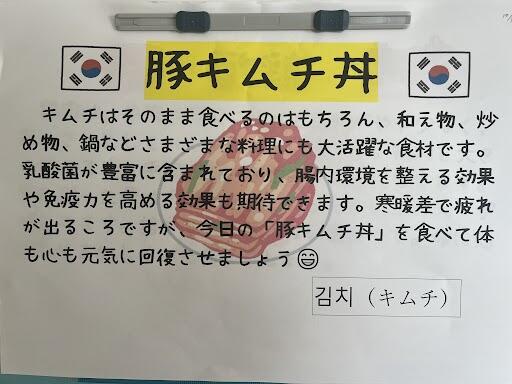 豚キムチ丼
キムチはそのまま食べるのはもちろん、和え物、炒
め物、鍋などさまざまな料理にも大活躍な食材です。
乳酸菌が豊富に含まれており、腸内環境を整える効果
や免疫力を高める効果も期待できます。寒暖差で疲れ
が出るころですが、今日の「豚キムチ丼」を食べて体
も心も元気に回復させましょう😄
김치（キムチ）